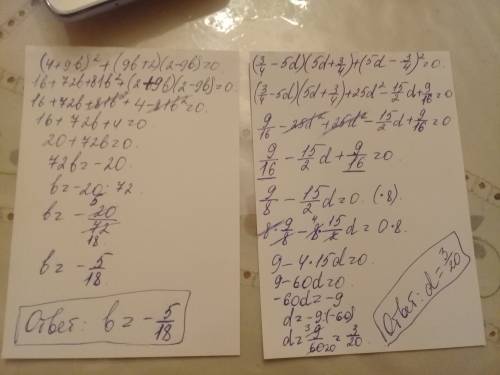 (4+9b)²+(9b+2)(2-9b)=0
16+72b+81b²+(2+9b)(2-9b)=0
16+72b+81b²+4-81b²=0.
16+72b+4=0
20+72b=0.
72b=-20.
b=-20:72.
b=-20/72 5 18
b=-5/18.
Ответ: b=-5/18
(3/4-5d)(5d+3/4)+(5d-3/4)²=0.
(3/4-5d)(5d+3/4)+25d²-15/2d+9/16=0
9/16-25d²+25d²-15/2d+9/16=0
9/16-15/2d+9/16=0
9/8-15/2d=0. (·8)
8·9/8-8·15/2d=0·8. 4
9-4·15d=0.
9-60d=0.
-60d=-9
d=-9:(-60)
d=9/60=3/20. 3 20
Ответ: d=3/20